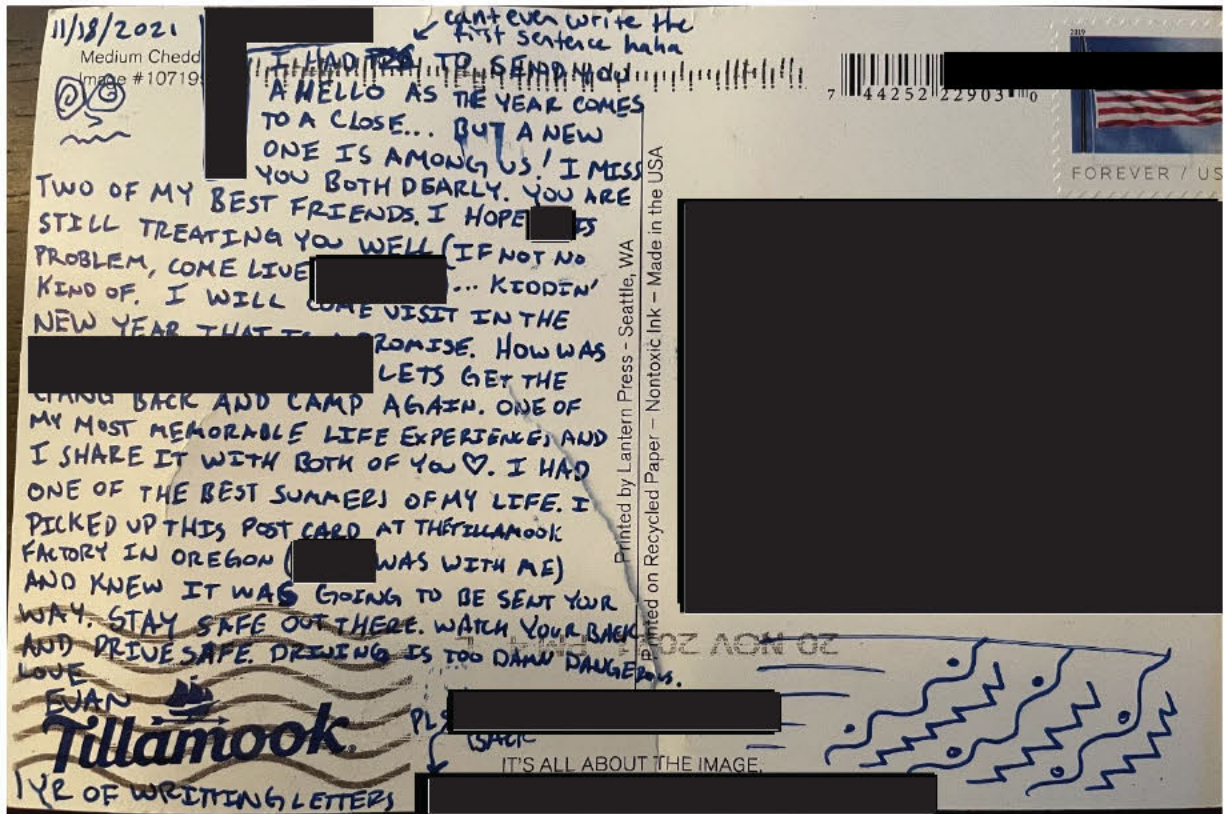 11/18/2021
cant even write the
first sentence haha
Medium Chedd
Image #10719
I HAD TO SEND YOU
A HELLO AS THE YEAR COMES
TO A CLOSE... BUT A NEW
ONE IS AMONG US! I MISS
YOU BOTH DEARLY. YOU ARE
TWO OF MY BEST FRIENDS. I HOPE IS
STILL TREATING YOU WELL (IF NOT NO
PROBLEM, COME LIVE ... KIDDIN'
KIND OF. I WILL COME VISIT IN THE
NEW YEAR THAT IS A PROMISE. HOW WAS
LETS GET THE
GANG BACK AND CAMP AGAIN. ONE OF
MY MOST MEMORABLE LIFE EXPERIENCES AND
I SHARE IT WITH BOTH OF YOU ♡. I HAD
ONE OF THE BEST SUMMERS OF MY LIFE. I
PICKED UP THIS POST CARD AT THE TILLAMOOK
FACTORY IN OREGON ( WAS WITH ME)
AND KNEW IT WAS GOING TO BE SENT YOUR
WAY. STAY SAFE OUT THERE. WATCH YOUR BACK
AND DRIVE SAFE. DRIVING IS TOO DAMN DANGEROUS.
LOVE
EVAN
Tillamook®
1 YR OF WRITTING LETTERS
PLS
BACK
IT'S ALL ABOUT THE IMAGE.
Printed by Lantern Press – Seattle, WA
Printed on Recycled Paper – Nontoxic Ink – Made in the USA
7 44252 22903 0
2019
FOREVER / US
20 NOV 2021 PM